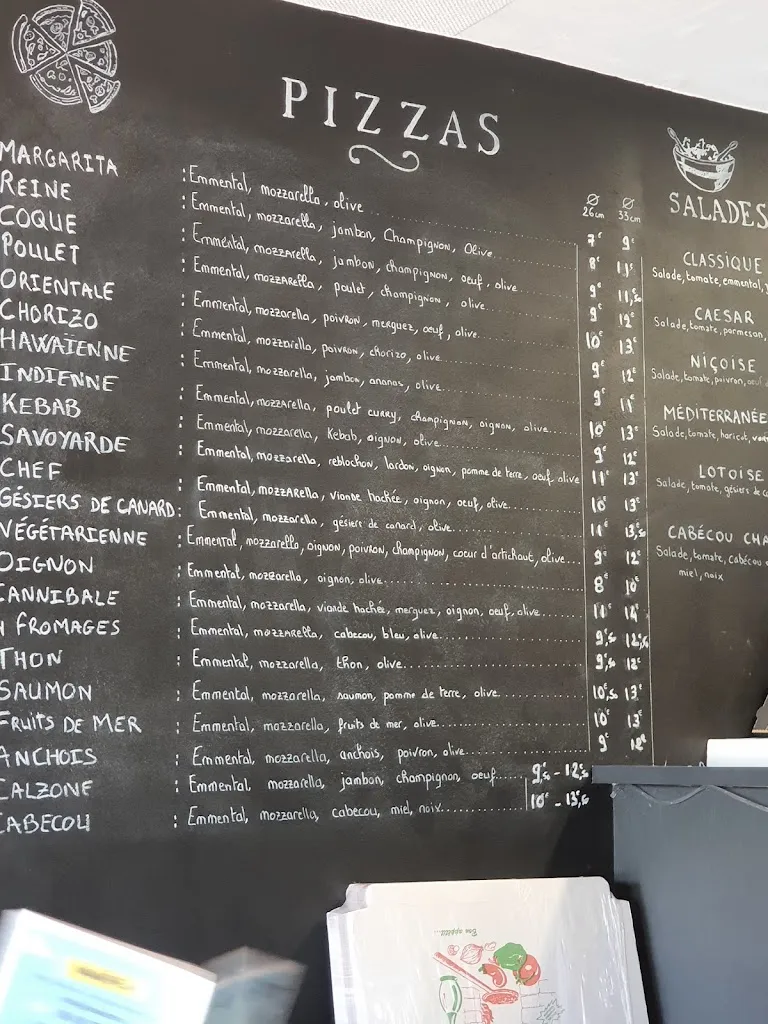 PIZZAS
Ø 26cm Ø 33cm
MARGARITA : Emmental, mozzarella, olive 7€ 9€
REINE : Emmental, mozzarella, jambon, Champignon, Olive 8€ 11€
COQUE : Emmental, mozzarella, jambon, champignon, oeuf, olive 9€ 11€50
POULET : Emmental, mozzarella, poulet, champignon, olive 9€ 12€
ORIENTALE : Emmental, mozzarella, poivron, merguez, oeuf, olive 10€ 13€
CHORIZO : Emmental, mozzarella, poivron, chorizo, olive 9€ 12€
HAWAÏENNE : Emmental, mozzarella, jambon, ananas, olive 9€ 11€
INDIENNE : Emmental, mozzarella, poulet curry, champignon, oignon, olive 10€ 13€
KEBAB : Emmental, mozzarella, Kebab, oignon, olive 9€ 12€
SAVOYARDE : Emmental, mozzarella, reblochon, lardon, oignon, pomme de terre, oeuf, olive 11€ 13€
CHEF : Emmental, mozzarella, viande hachée, oignon, oeuf, olive 10€ 13€
GÉSIERS DE CANARD : Emmental, mozzarella, gésiers de canard, olive 11€ 13€50
VÉGÉTARIENNE : Emmental, mozzarella, oignon, poivron, champignon, coeur d'artichaut, olive 9€ 12€
OIGNON : Emmental, mozzarella, oignon, olive 8€ 10€
CANNIBALE : Emmental, mozzarella, viande hachée, merguez, oignon, oeuf, olive 11€ 14€
4 FROMAGES : Emmental, mozzarella, cabecou, bleu, olive 9€50 12€50
THON : Emmental, mozzarella, thon, olive 9€50 12€
SAUMON : Emmental, mozzarella, saumon, pomme de terre, olive 10€50 13€
FRUITS DE MER : Emmental, mozzarella, fruits de mer, olive 10€ 13€
ANCHOIS : Emmental, mozzarella, anchois, poivron, olive 9€ 12€
CALZONE : Emmental, mozzarella, jambon, champignon, oeuf 9€50 - 12€50
CABECOU : Emmental, mozzarella, cabecou, miel, noix 10€ - 13€50
SALADES
CLASSIQUE
Salade, tomate, emmental,
CAESAR
Salade, tomate, parmesan,
NIÇOISE
Salade, tomate, poivron, oeuf
MÉDITERRANÉE
Salade, tomate, haricot,
LOTOISE
Salade, tomate, gésiers de
CABÉCOU
Salade, tomate, cabécou
miel, noix
Bon appétit...